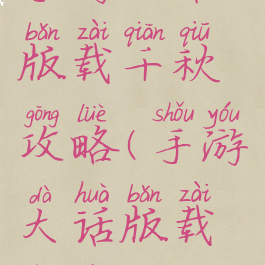 bǎn zài qiān qiū
版载千秋
gōng lüè shǒu yóu
攻略(手游
dà huà bǎn zài
大话版载